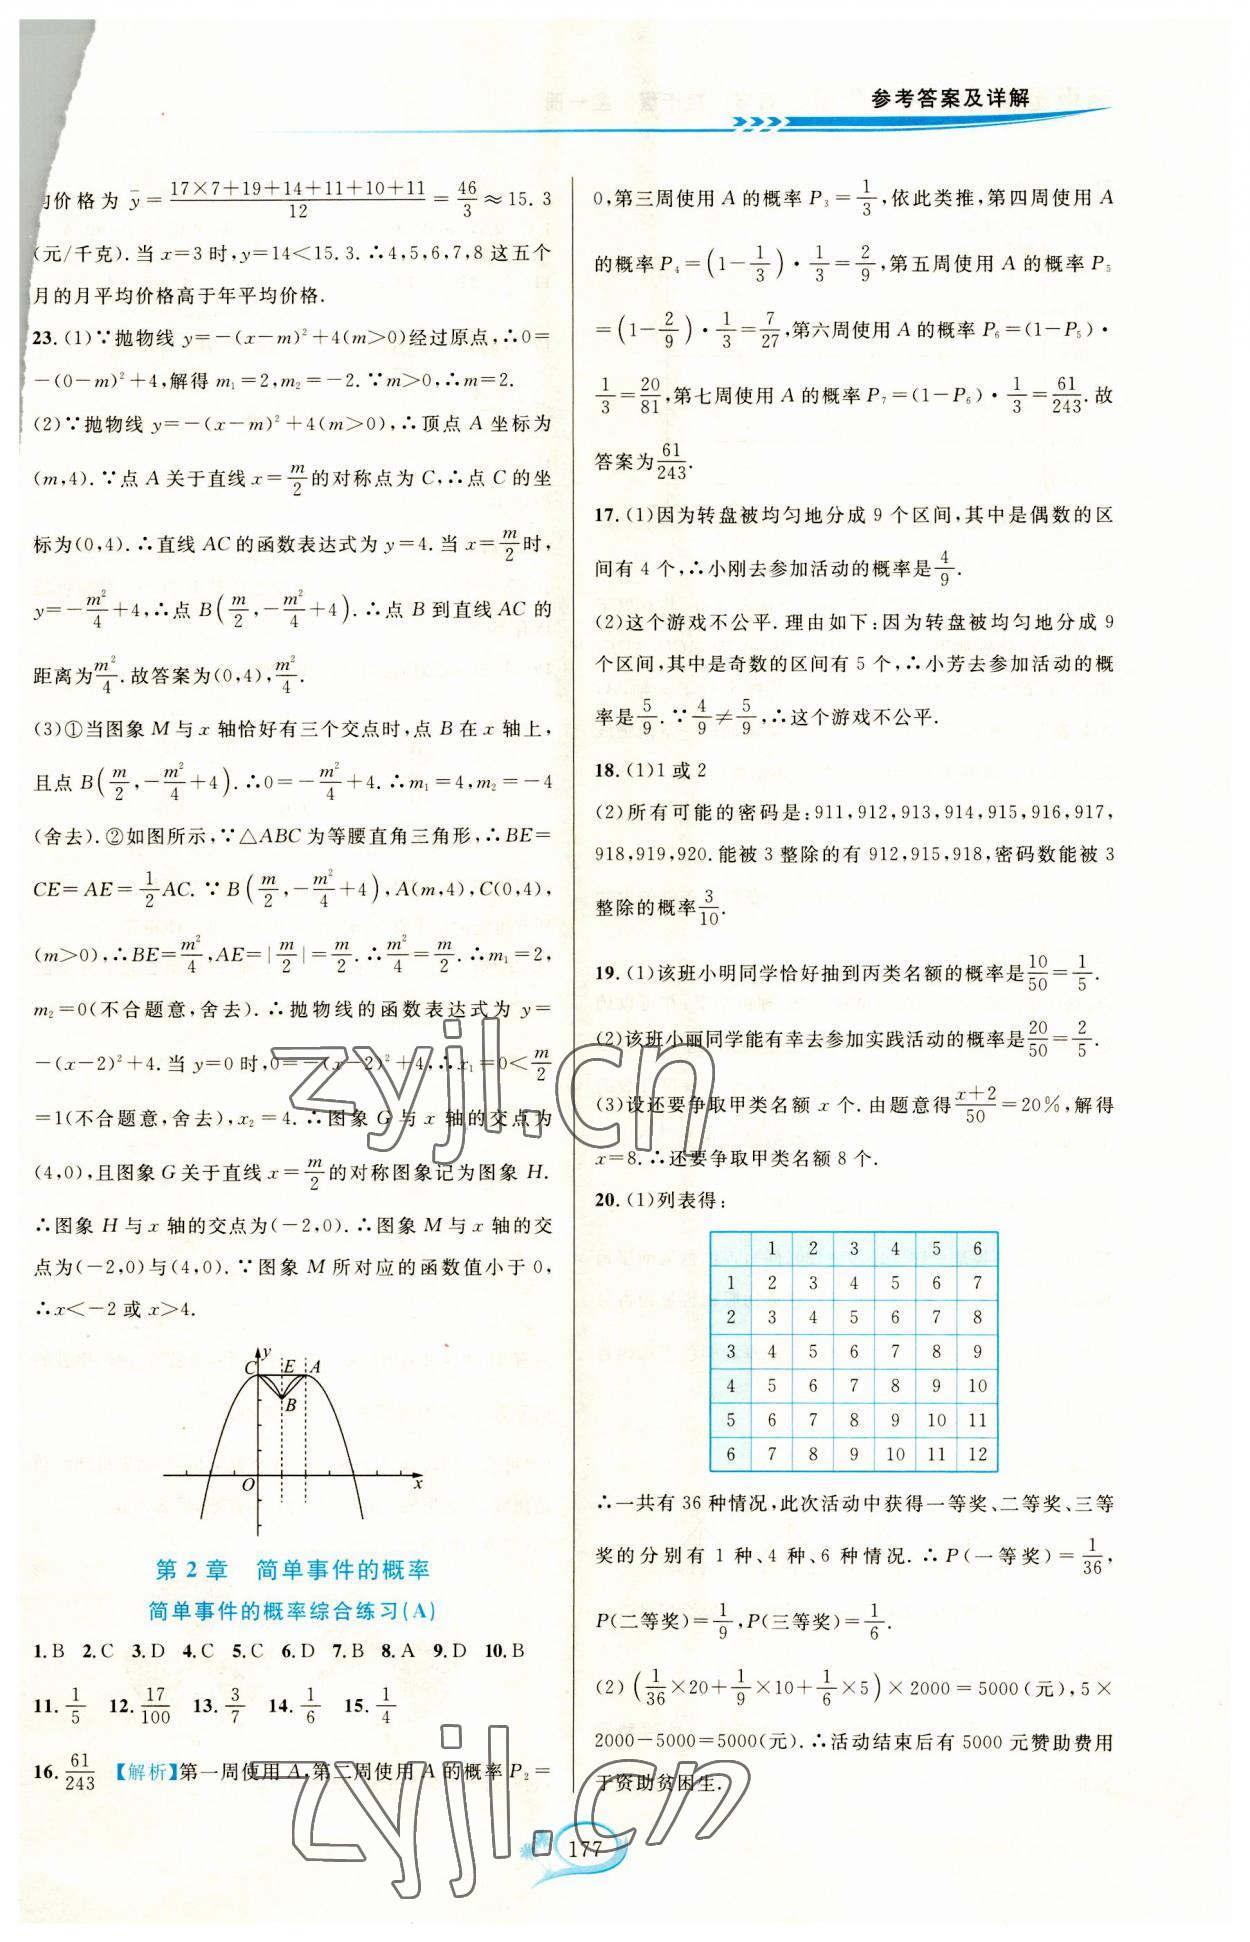 参考答案及详解
均价格为 ȳ=(17×7+19+14+11+10+11)/12=46/3≈15.3
(元/千克).当 x=3 时,y=14<15.3.∴4,5,6,7,8 这五个
月的月平均价格高于年平均价格.
23.(1)∵抛物线 y=-(x-m)²+4(m>0)经过原点,∴0=
-(0-m)²+4,解得 m₁=2,m₂=-2.∵m>0,∴m=2.
(2)∵抛物线 y=-(x-m)²+4(m>0),∴顶点 A 坐标为
(m,4).∵点 A 关于直线 x=m/2 的对称点为 C,∴点 C 的坐
标为(0,4).∴直线 AC 的函数表达式为 y=4.当 x=m/2 时,
y=-m²/4+4,∴点 B(m/2,-m²/4+4).∴点 B 到直线 AC 的
距离为 m²/4.故答案为(0,4),m²/4.
(3)①当图象 M 与 x 轴恰好有三个交点时,点 B 在 x 轴上,
且点 B(m/2,-m²/4+4).∴0=-m²/4+4.∴m₁=4,m₂=-4
(舍去).②如图所示,∵△ABC 为等腰直角三角形,∴BE=
CE=AE=1/2AC.∵B(m/2,-m²/4+4),A(m,4),C(0,4),
(m>0),∴BE=m²/4,AE=|m/2|=m/2.∴m²/4=m/2.∴m₁=2,
m₂=0(不合题意,舍去).∴抛物线的函数表达式为 y=
-(x-2)²+4.当 y=0 时,0=-(x-2)²+4,∴x₁=0<m/2
=1(不合题意,舍去),x₂=4.∴图象 G 与 x 轴的交点为
(4,0),且图象 G 关于直线 x=m/2 的对称图象记为图象 H.
∴图象 H 与 x 轴的交点为(-2,0).∴图象 M 与 x 轴的交
点为(-2,0)与(4,0).∵图象 M 所对应的函数值小于 0,
∴x<-2 或 x>4.
y
C E A
B
O x
第 2 章 简单事件的概率
简单事件的概率综合练习(A)
1.B 2.C 3.D 4.C 5.C 6.D 7.B 8.A 9.D 10.B
11.1/5 12.17/100 13.3/7 14.1/6 15.1/4
16.61/243 【解析】第一周使用 A,第二周使用 A 的概率 P₂=
0,第三周使用 A 的概率 P₃=1/3,依此类推,第四周使用 A
的概率 P₄=(1-1/3)·1/3=2/9,第五周使用 A 的概率 P₅
=(1-2/9)·1/3=7/27,第六周使用 A 的概率 P₆=(1-P₅)·
1/3=20/81,第七周使用 A 的概率 P₇=(1-P₆)·1/3=61/243.故
答案为 61/243.
17.(1)因为转盘被均匀地分成 9 个区间,其中是偶数的区
间有 4 个,∴小刚去参加活动的概率是 4/9.
(2)这个游戏不公平.理由如下:因为转盘被均匀地分成 9
个区间,其中是奇数的区间有 5 个,∴小芳去参加活动的概
率是 5/9.∵4/9≠5/9,∴这个游戏不公平.
18.(1)1 或 2
(2)所有可能的密码是:911,912,913,914,915,916,917,
918,919,920.能被 3 整除的有 912,915,918,密码数能被 3
整除的概率 3/10.
19.(1)该班小明同学恰好抽到丙类名额的概率是 10/50=1/5.
(2)该班小丽同学能有幸去参加实践活动的概率是 20/50=2/5.
(3)设还要争取甲类名额 x 个.由题意得 (x+2)/50=20%,解得
x=8.∴还要争取甲类名额 8 个.
20.(1)列表得:
1 2 3 4 5 6
1 2 3 4 5 6 7
2 3 4 5 6 7 8
3 4 5 6 7 8 9
4 5 6 7 8 9 10
5 6 7 8 9 10 11
6 7 8 9 10 11 12
∴一共有 36 种情况,此次活动中获得一等奖、二等奖、三等
奖的分别有 1 种、4 种、6 种情况.∴P(一等奖)=1/36,
P(二等奖)=1/9,P(三等奖)=1/6.
(2)(1/36×20+1/9×10+1/6×5)×2000=5000(元),5×
2000-5000=5000(元).∴活动结束后有 5000 元赞助费用
于资助贫困生.
177
zyjl.cn
zyjl.cn